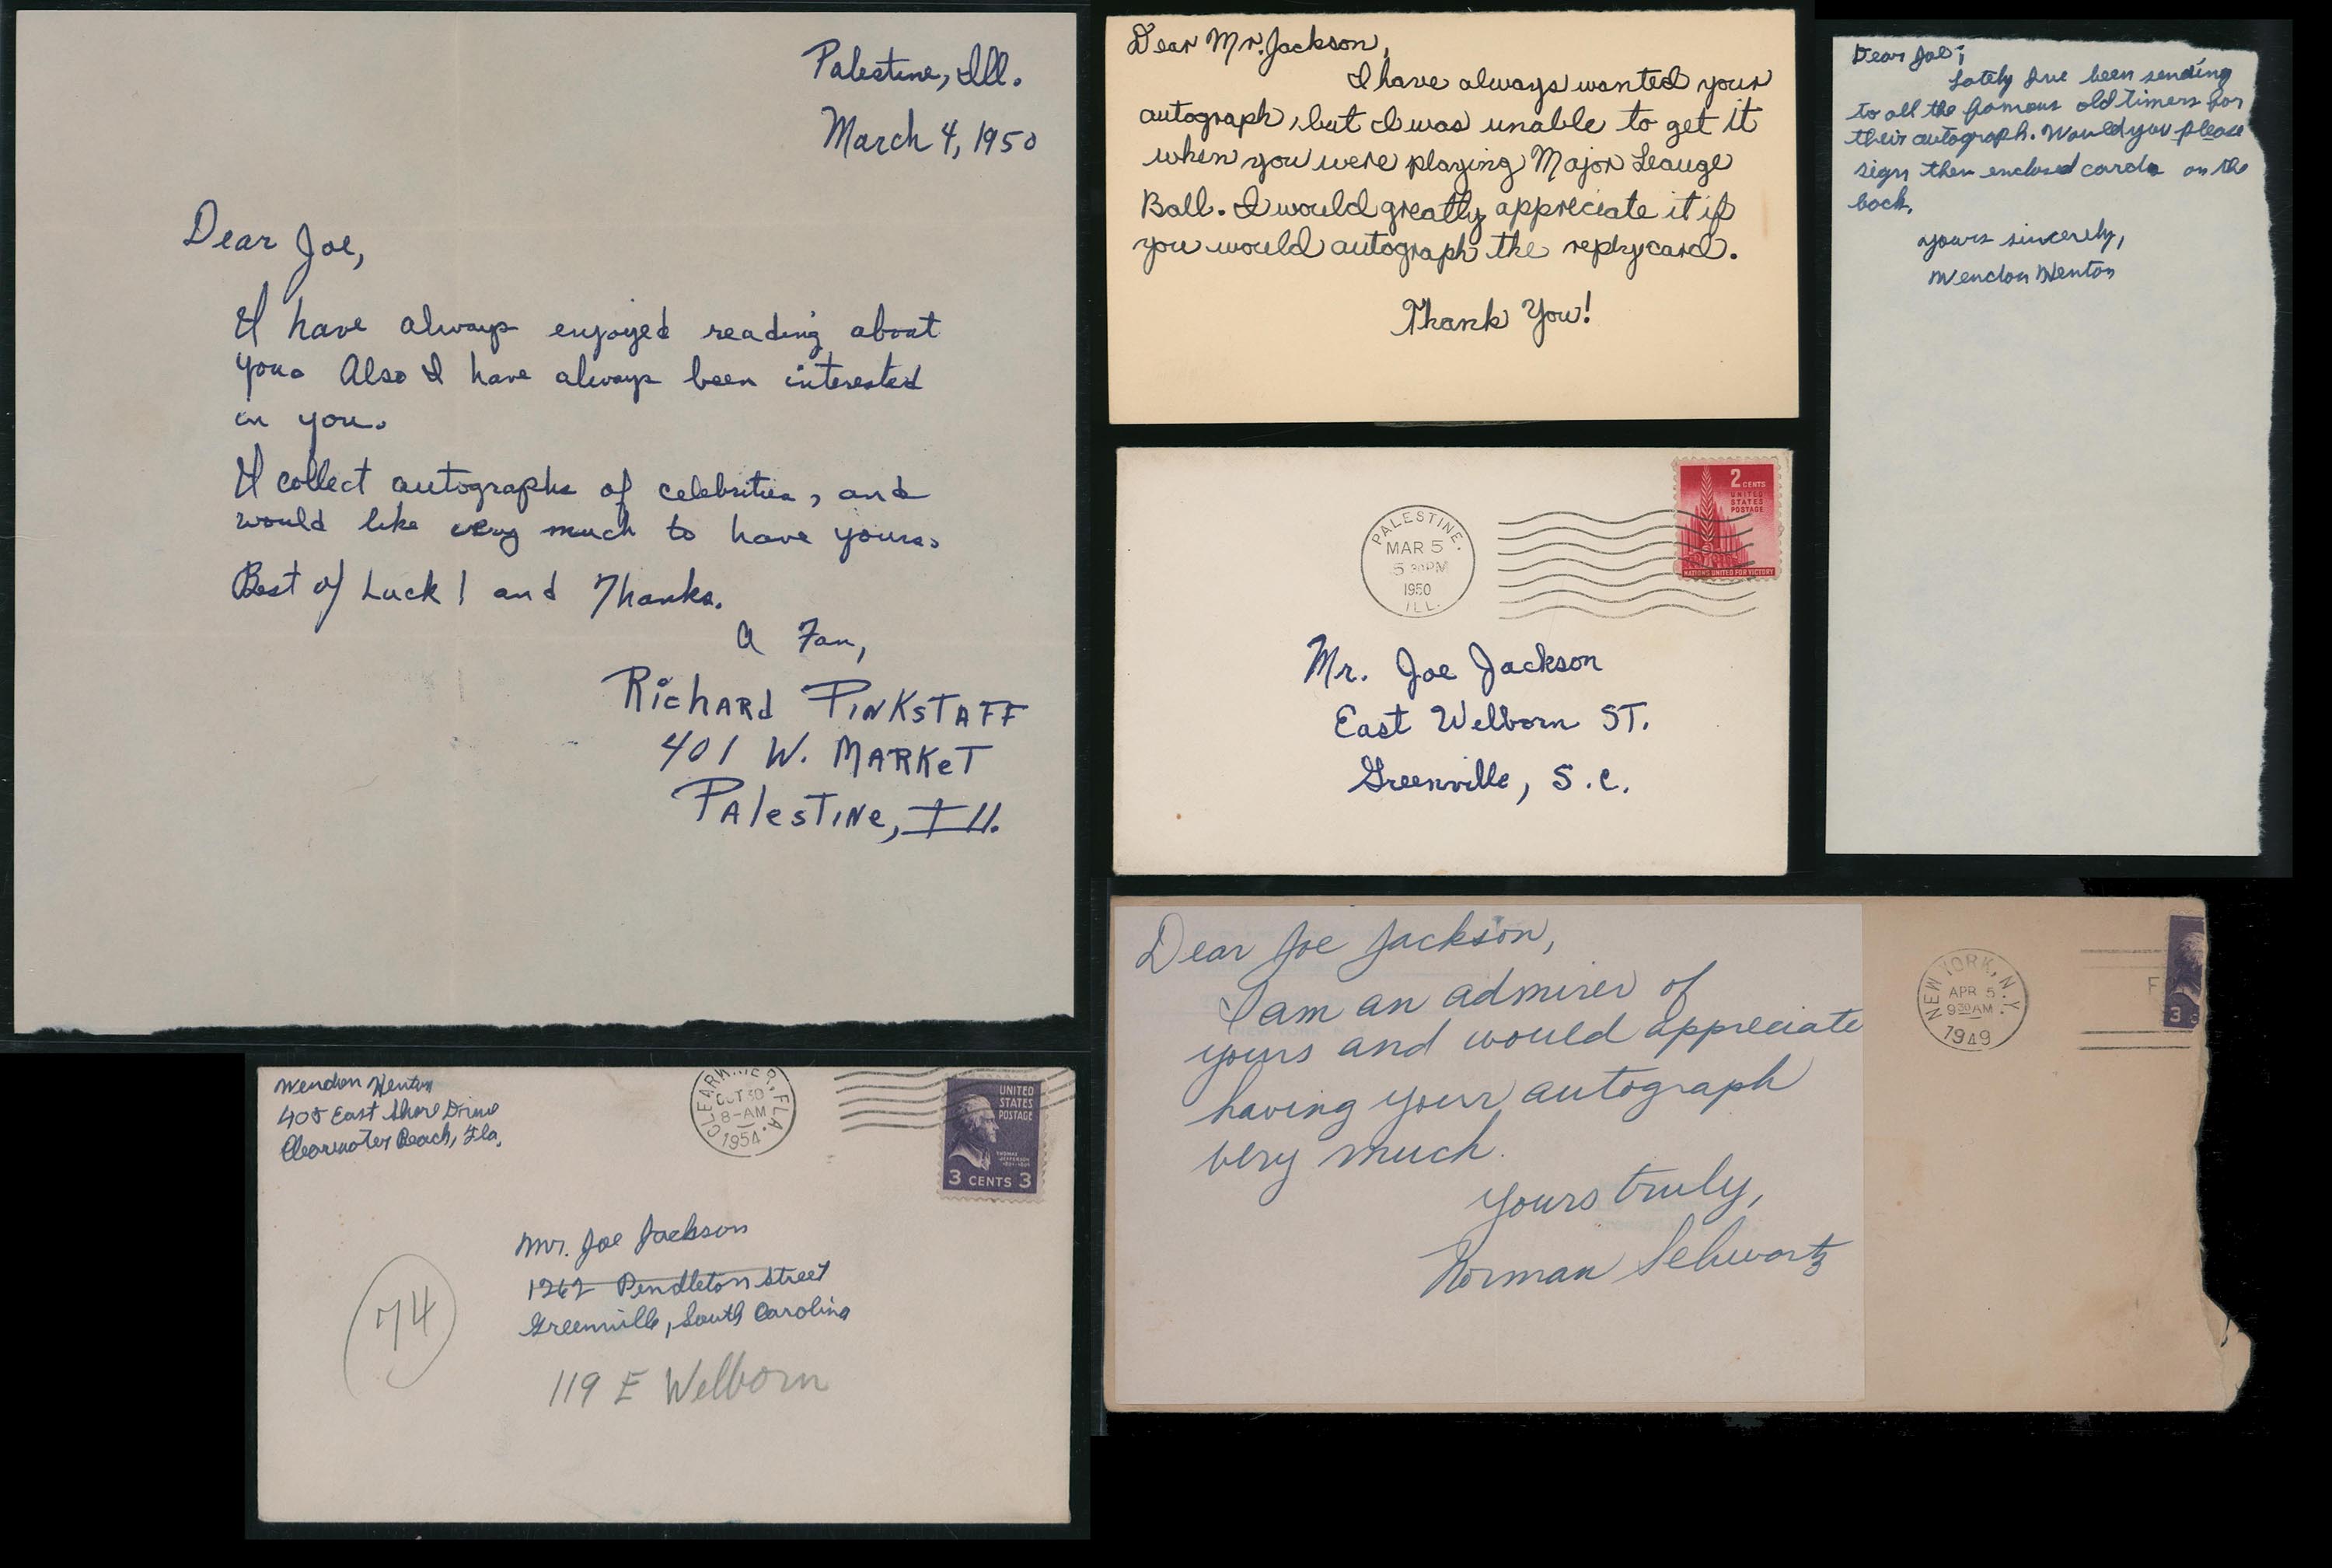 Palestine, Ill.
March 4, 1950
Dear Joe,
I have always enjoyed reading about
you. Also I have always been interested
in you.
I collect autographs of celebrities, and
would like very much to have yours.
Best of Luck! and Thanks.
A Fan,
Richard Pinkstaff
401 W. Market
Palestine, Ill.
Dear Mr. Jackson,
I have always wanted your
autograph, but I was unable to get it
when you were playing Major Leauge
Ball. I would greatly appreciate it if
you would autograph the reply card.
Thank You!
Dear Joe;
Lately I've been sending
to all the famous old timers for
their autograph. Would you please
sign then enclosed cards on the
back.
Yours sincerely,
Wendon Henton
2 CENTS
UNITED
STATES
POSTAGE
NATIONS UNITED FOR VICTORY
PALESTINE.
MAR 5
5 30PM
1950
ILL.
Mr. Joe Jackson
East Welborn ST.
Greenville, S.C.
Dear Joe Jackson,
I am an admirer of
yours and would appreciate
having your autograph
very much.
Yours truly,
Norman Schwartz
NEW YORK, N.Y.
APR 5
9 30 AM
1949
F
3
Wendon Henton
405 East Shore Drive
Clearwater Beach, Fla.
CLEARWATER, FLA.
OCT 30
8-AM
1954
UNITED
STATES
POSTAGE
THOMAS
JEFFERSON
3 CENTS 3
Mr. Joe Jackson
1262 Pendleton Street
Greenville, South Carolina
119 E Welborn
74